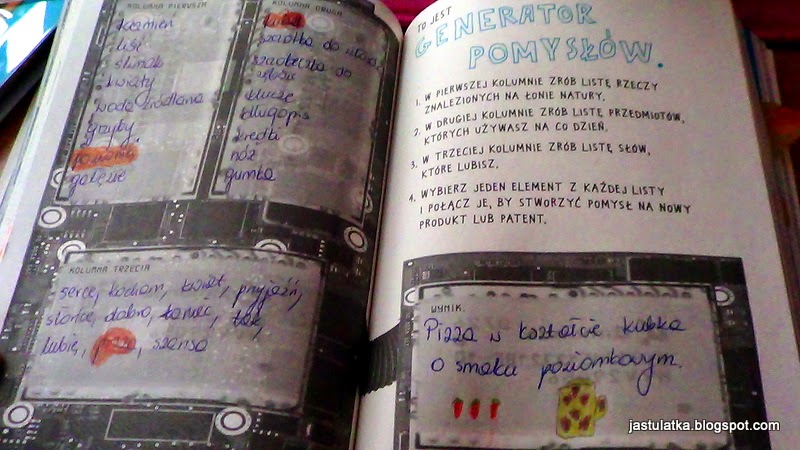 KOLUMNA PIERWSZA
kamień
liść
ślimak
kwiaty
woda źródlana
grzyby
poziomka
gałęzie
KOLUMNA DRUGA
szczotka do włosów
szczoteczka do
zębów
klucze
długopis
kredki
nóż
gumka
KOLUMNA TRZECIA
serce, kocham, kwiat, przyjaźń,
słońce, dobro, taniec, tak,
lubię, pizza, szansa
TO JEST
GENERATOR
POMYSŁÓW.
1. W PIERWSZEJ KOLUMNIE ZRÓB LISTĘ RZECZY
ZNALEZIONYCH NA ŁONIE NATURY.
2. W DRUGIEJ KOLUMNIE ZRÓB LISTĘ PRZEDMIOTÓW,
KTÓRYCH UŻYWASZ NA CO DZIEŃ.
3. W TRZECIEJ KOLUMNIE ZRÓB LISTĘ SŁÓW,
KTÓRE LUBISZ.
4. WYBIERZ JEDEN ELEMENT Z KAŻDEJ LISTY
I POŁĄCZ JE, BY STWORZYĆ POMYSŁ NA NOWY
PRODUKT LUB PATENT.
WYNIK.
Pizza w kształcie kubka
o smaku poziomkowym.
jastulatka.blogspot.com